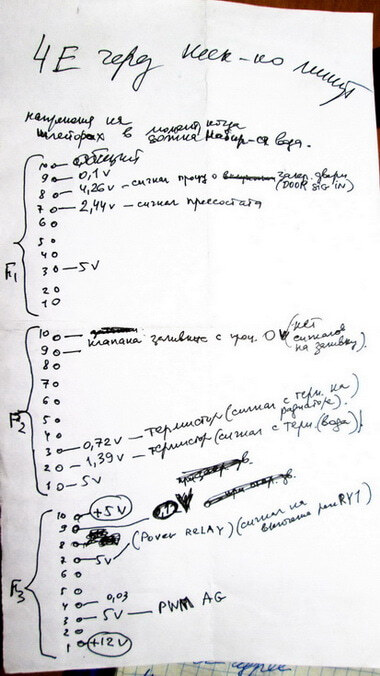 4Е через неск-ко минут
напряжения на
шлейфах в момент когда
должна набир-ся вода.
F1
10 общий
9 0,1 V
8 4,26 V – сигнал проц. о закр. двери
(DOOR SIG IN)
7 2,44 V – сигнал прессостата
6
5
4
3 – 5V
2
1
F2
10
9 клапана заливные с проц. 0V (нет
сигналов
на заливку).
8
7
6
5
4
3 – 0,72 V – термистор (сигнал с терм. на
радиаторе).
2 – 1,39 V – термистор (сигнал с терм. (вода))
1 – 5V
F3
10 +5V
9
8
7 5V (Power RELAY) (сигнал на
включение реле RY1)
6
5
4 – 0,03
3 – 5V – PWM AG
2
1 +12V